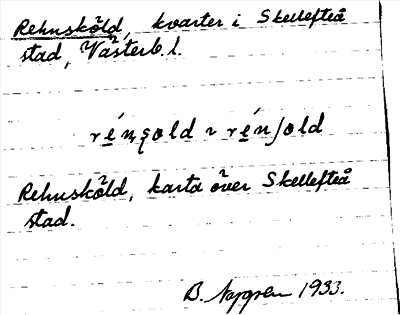 Rehnsköld, kvarter i Skellefteå
stad, Västerb. l.
rę́nşold ~ rę́nʃold
Rehnsköld, karta över Skellefteå
stad.
B. Nygren 1933.